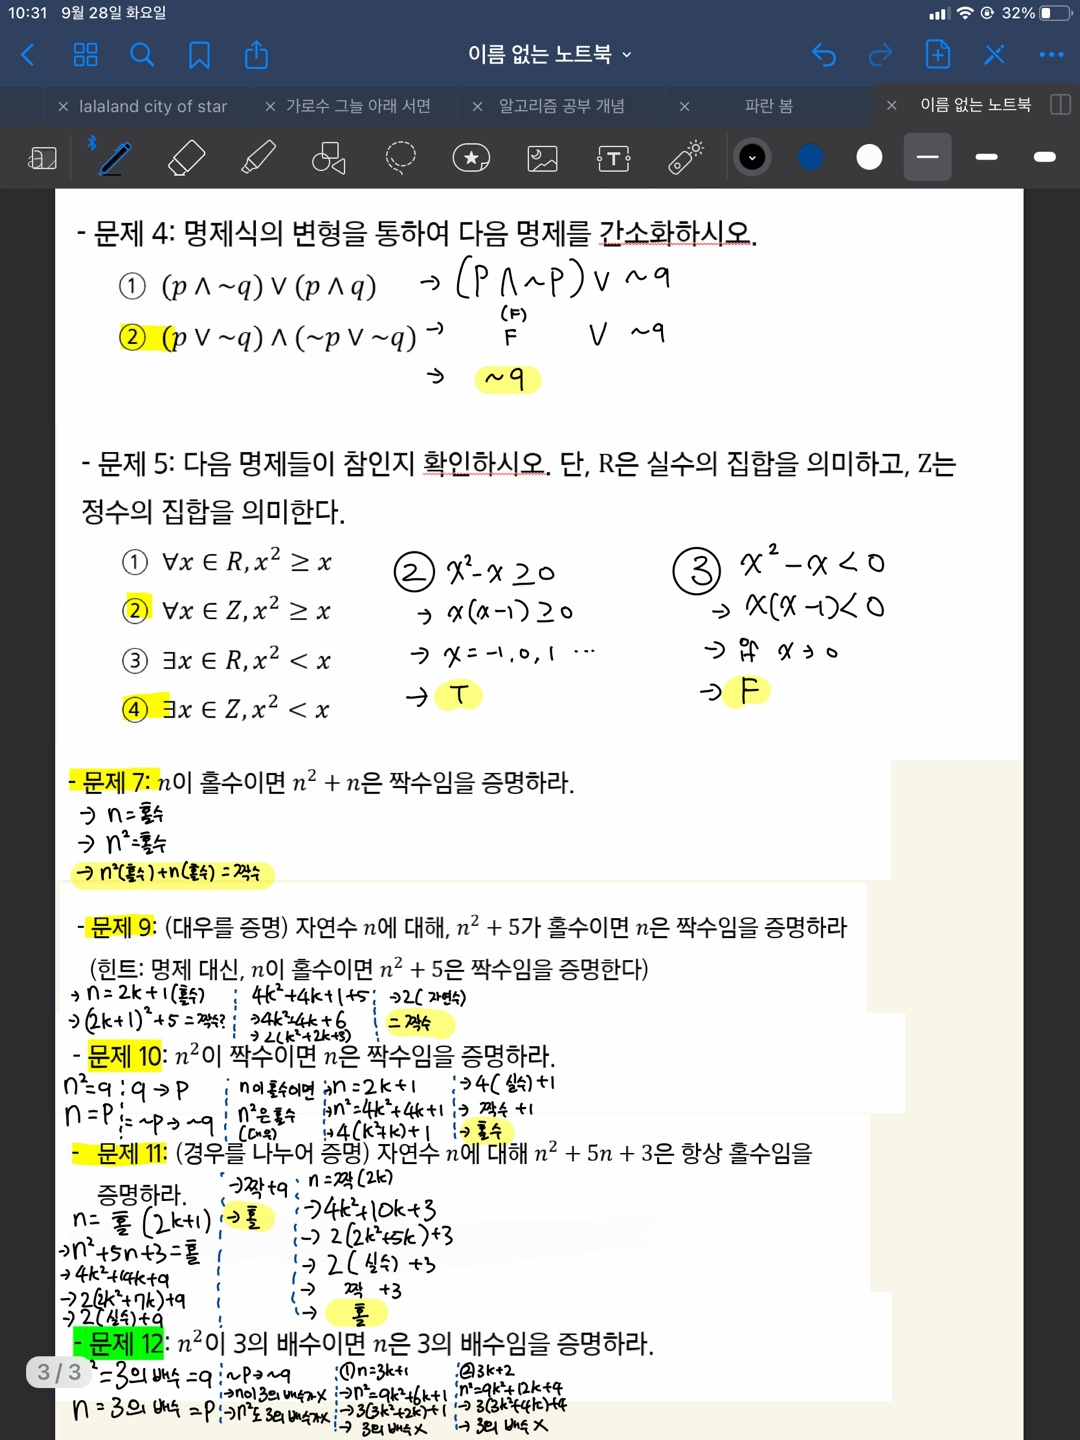 10:31 9월 28일 화요일 32%
이름 없는 노트북
lalaland city of star
가로수 그늘 아래 서면
알고리즘 공부 개념
파란 봄
이름 없는 노트북
- 문제 4: 명제식의 변형을 통하여 다음 명제를 간소화하시오.
① (p ∧ ~q) ∨ (p ∧ q) → (P ∧ ~P) ∨ ~q
(F)
② (p ∨ ~q) ∧ (~p ∨ ~q) → F ∨ ~q
→ ~q
- 문제 5: 다음 명제들이 참인지 확인하시오. 단, R은 실수의 집합을 의미하고, Z는
정수의 집합을 의미한다.
① ∀x ∈ R, x² ≥ x
② ∀x ∈ Z, x² ≥ x
③ ∃x ∈ R, x² < x
④ ∃x ∈ Z, x² < x
② x²-x ≥ 0
→ x(x-1) ≥ 0
→ x = -1, 0, 1 ...
→ T
③ x²-x < 0
→ x(x-1) < 0
→ if x → 0
→ F
- 문제 7: n이 홀수이면 n² + n은 짝수임을 증명하라.
→ n = 홀수
→ n² = 홀수
→ n²(홀수) + n(홀수) = 짝수
- 문제 9: (대우를 증명) 자연수 n에 대해, n² + 5가 홀수이면 n은 짝수임을 증명하라
(힌트: 명제 대신, n이 홀수이면 n² + 5은 짝수임을 증명한다)
→ n = 2k+1 (홀수)
→ (2k+1)²+5 = 짝수?
4k²+4k+1+5
→ 4k²+4k+6
→ 2(k²+2k+3)
→ 2(자연수)
= 짝수
- 문제 10: n²이 짝수이면 n은 짝수임을 증명하라.
n²=q
n=P
q → P
= ~P → ~q
n이 홀수이면
n²은 홀수
(대우)
→ n = 2k+1
→ n² = 4k²+4k+1
→ 4(k²+k)+1
→ 4(실수)+1
→ 짝수 +1
→ 홀수
- 문제 11: (경우를 나누어 증명) 자연수 n에 대해 n² + 5n + 3은 항상 홀수임을
증명하라.
n = 홀 (2k+1)
→ n²+5n+3 = 홀
→ 4k²+14k+9
→ 2(2k²+7k)+9
→ 2(실수)+9
→ 짝+9
→ 홀
n = 짝(2k)
→ 4k²+10k+3
→ 2(2k²+5k)+3
→ 2(실수)+3
→ 짝 +3
→ 홀
- 문제 12: n²이 3의 배수이면 n은 3의 배수임을 증명하라.
3/3
² = 3의 배수 = q
n = 3의 배수 = P
~P → ~q
→ n이 3의 배수가 X
→ n²도 3의 배수가 X
① n = 3k+1
→ n² = 9k²+6k+1
→ 3(3k²+2k)+1
→ 3의 배수 X
② 3k+2
n² = 9k²+12k+4
→ 3(3k²+4k)+4
→ 3의 배수 X